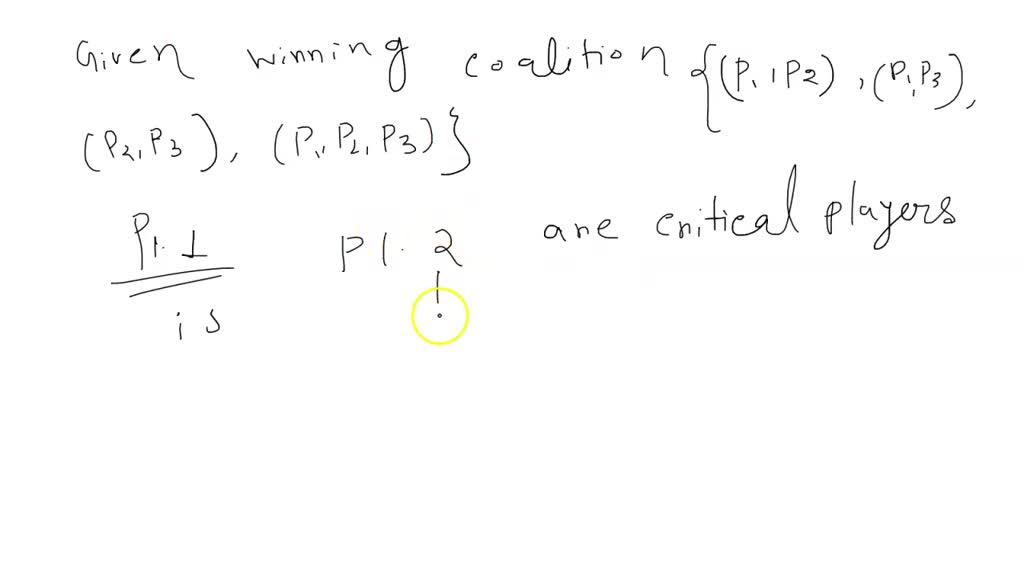 Given winning coalition {(P, , P2), (P, P3),
(P2, P3), (P, , P2, P3)}
Pl. 1 Pl. 2 are critical players
is